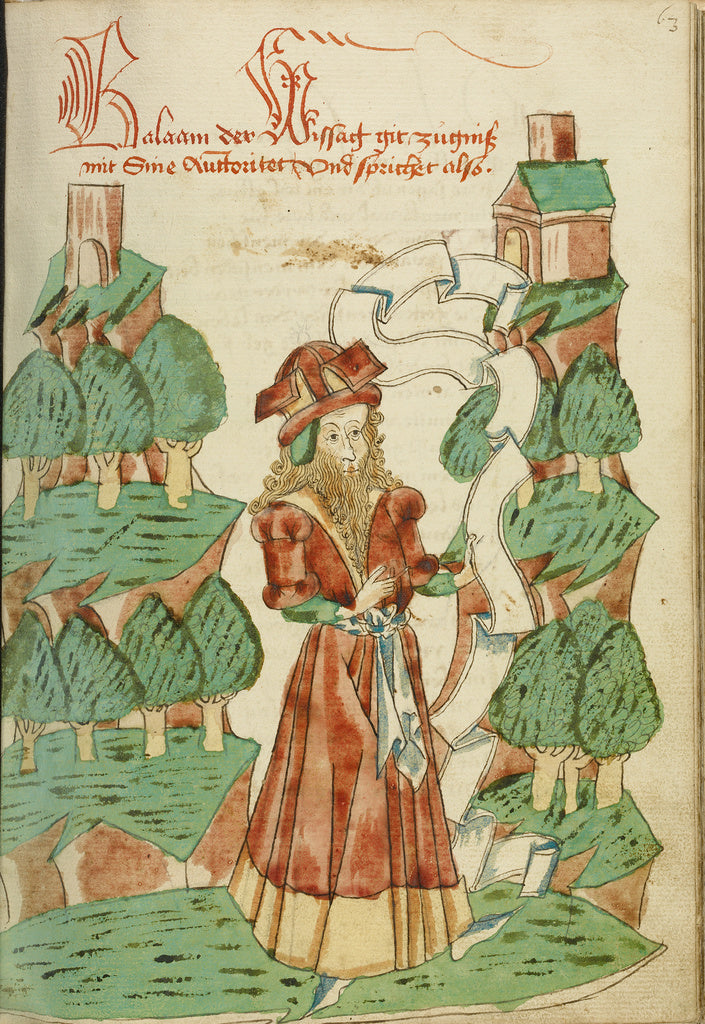 63
Balaam der Wissag git zügniß
mit Sine Aucttoritet Vnd sprichet also.